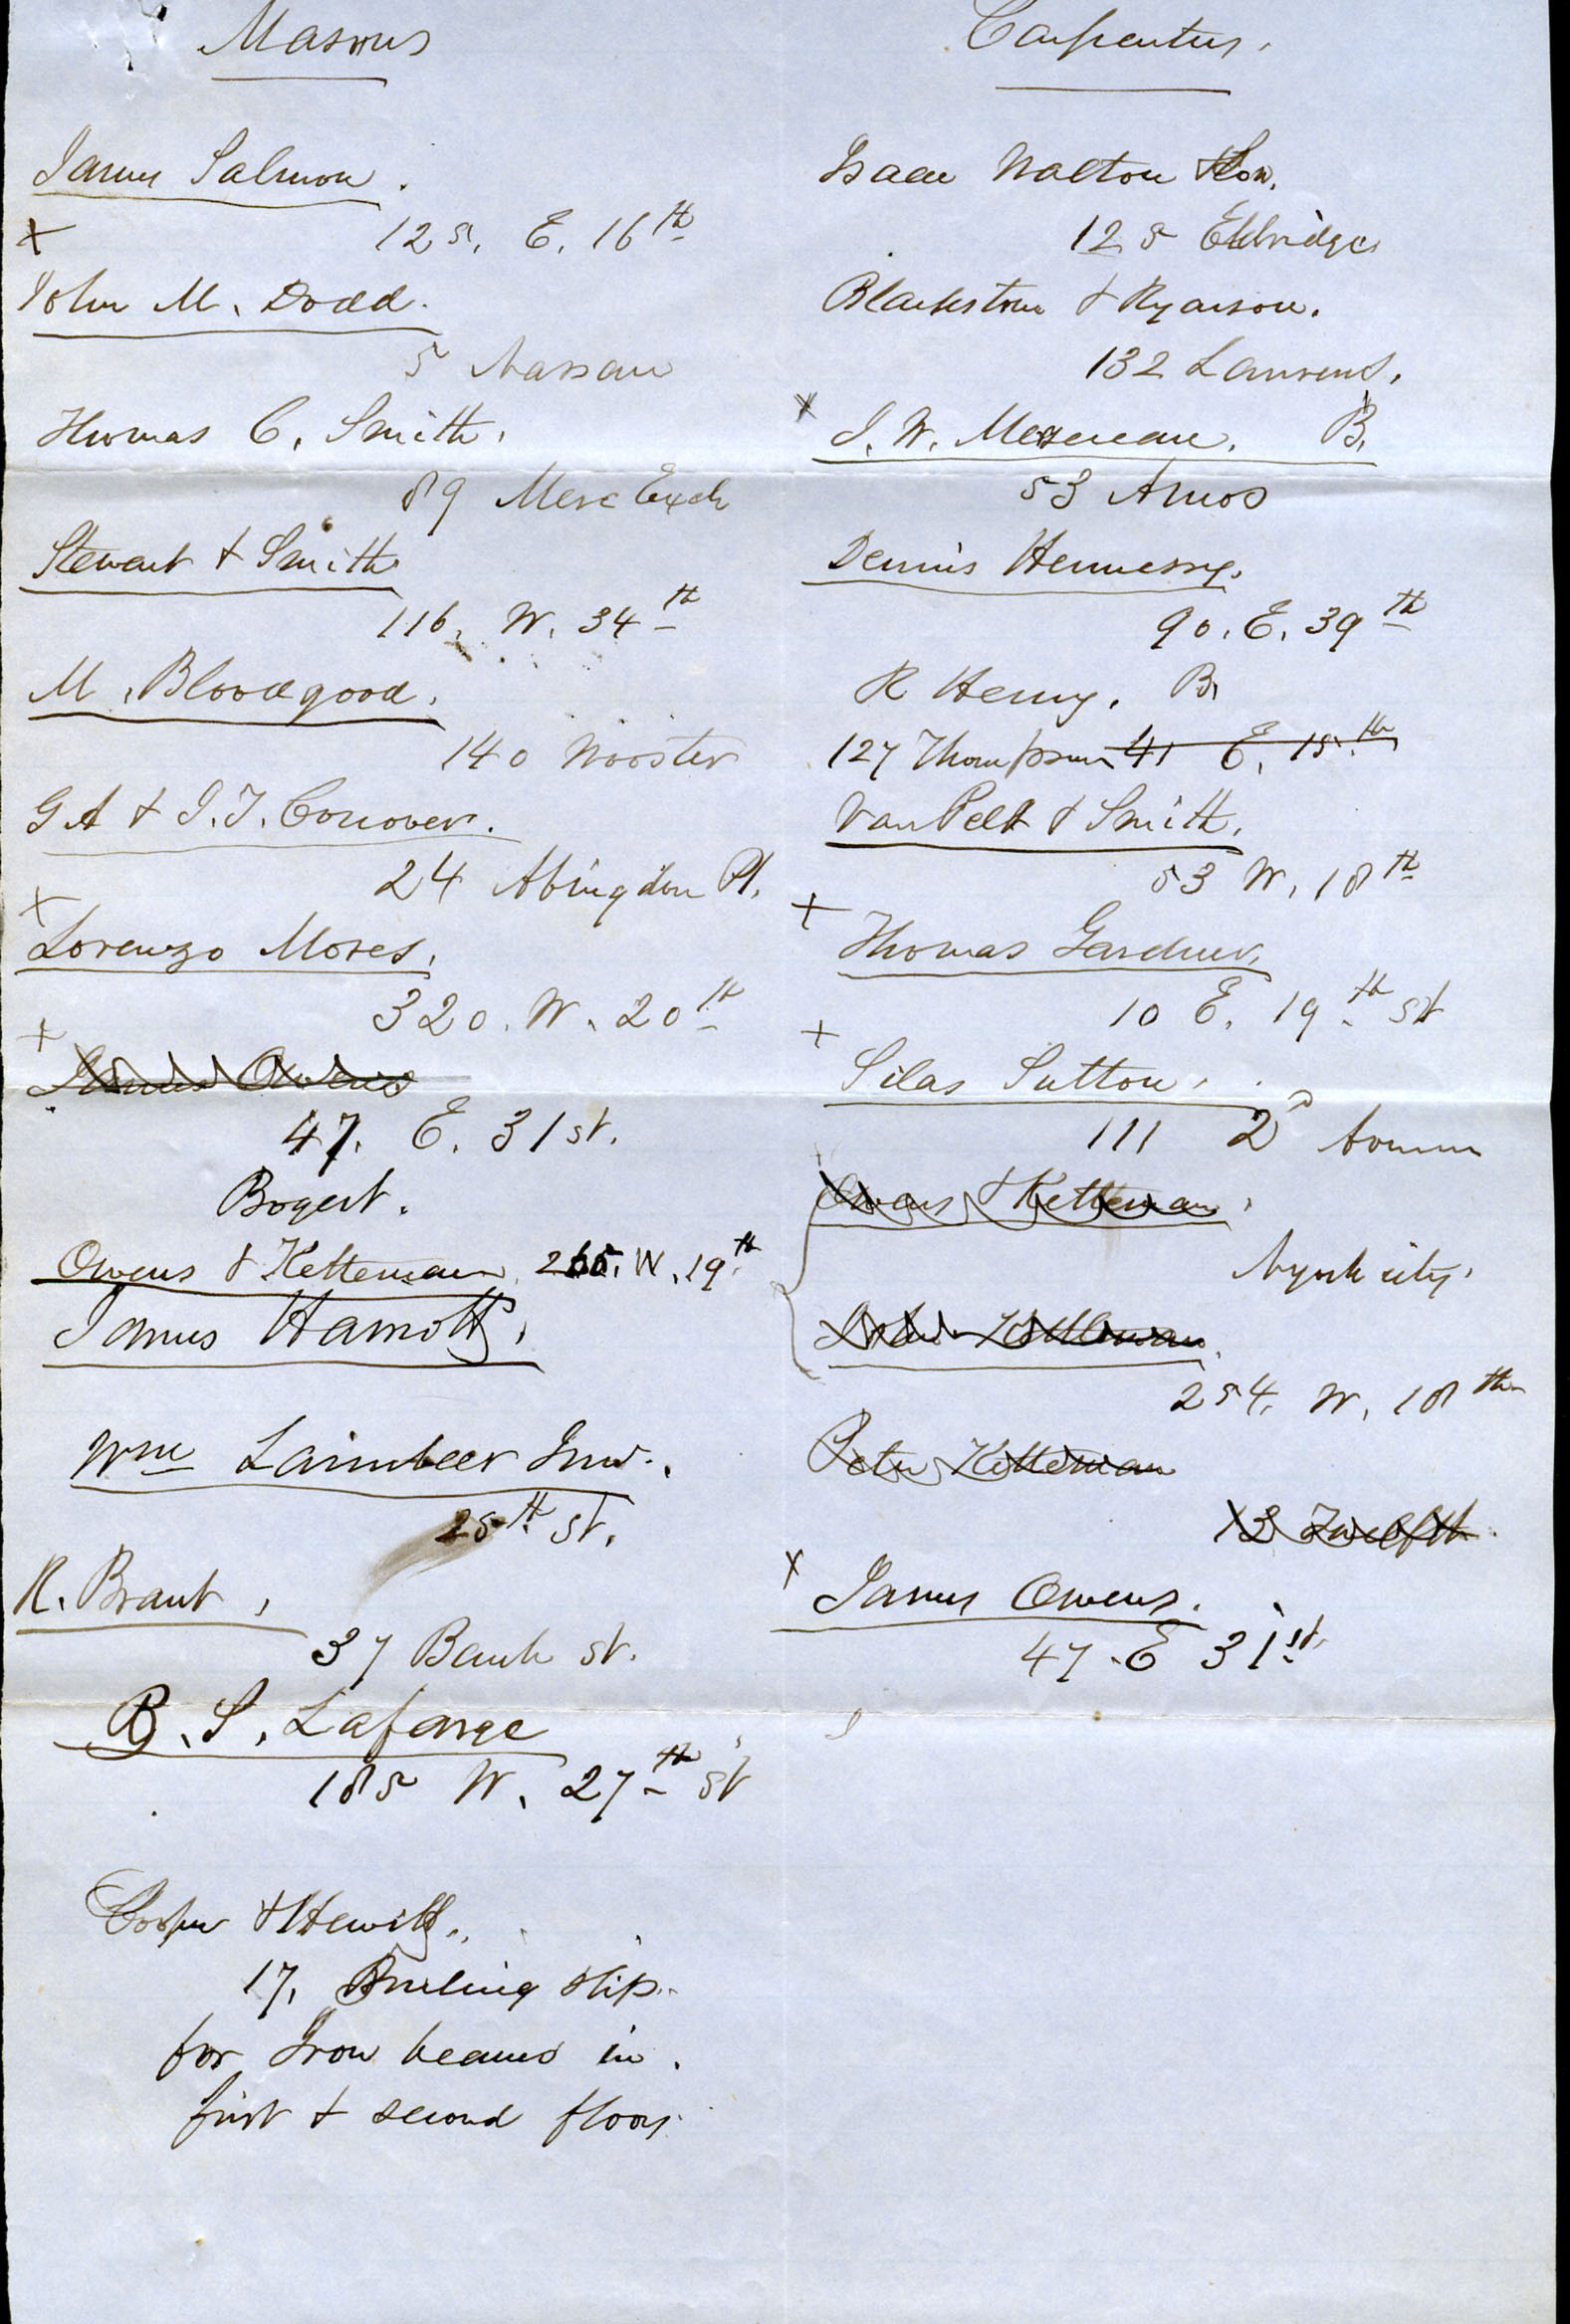 Masons
James Salmon.
x
125. E. 16th
John M. Dodd.
5 Nassau
Thomas C. Smith.
89 Merc Exch
Stewart & Smith
116. W. 34th
M. Bloodgood.
140 Wooster
G A & J. J. Conover.
24 Abingdon Pl.
x
Lorenzo Moses.
320. W. 20th
x
James Owens
47. E. 31 st.
Bogert.
Owens & Ketteman 265. W. 19th
James Harriott,
Wm Laimbeer Jnr.
25th st.
R. Brant,
37 Bank st.
B. S. Lafarge
185 W. 27th st
Cooper & Hewitt.
17. Burling slip.
for Iron beams in.
first & second floors.
Carpenters.
Isaac Walton & Son.
125 Eldridge
Blackstone & Ryarson.
132 Laurens.
x
J. W. Mersereau. B.
53 Amos
Dennis Hennessy.
90. E. 39th
R Henry. B.
127 Thompson 41 E. 15th
Van Pelt & Smith.
53 W. 18th
x
Thomas Gardner.
10 E. 19th st
x
Silas Sutton.
111 2d Avenue
Owens & Ketteman.
N york city.
Ketteman
254. W. 18th
Peter Ketteman
13 Twelfth
x
James Owens.
47. E 31st.